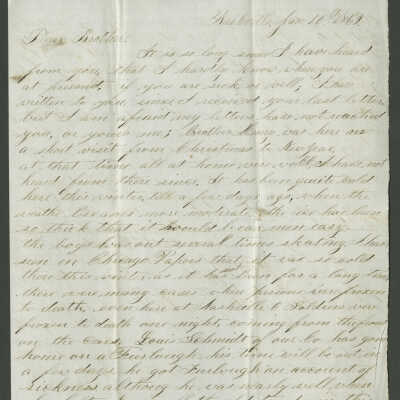 Nashville, Jan 10th 1864
Dear Brother
It is so long since I have heard
from you, that I hardly know where you are
at present. if you are sick or well, I have
written to you, since I received your last letter
but I am afraid my letters have not reached
you, or yours me; Brother Henry was here on
a short visit from Christmas to New year,
at that time all at home were well. I have not
heard from there since. It has been quite cold
here this winter, till a few days ago, when the
weather became more moderate the ice have been
so thick that it would bear men easy.
the boys have out several times skating. I have
seen in Chicago Papers that it was so cold
there this winter as it has been for a long time,
there were many cases when persons were frozen
to death, even here at Nashville 2 Soldiers were
frozen to death one night, coming from the front
on the cars, Louis Schmidt of our Co has gone
home on a Furlough his time will be out in
a few days, he got Furlough on account of
Sickness although he was nearly well, when